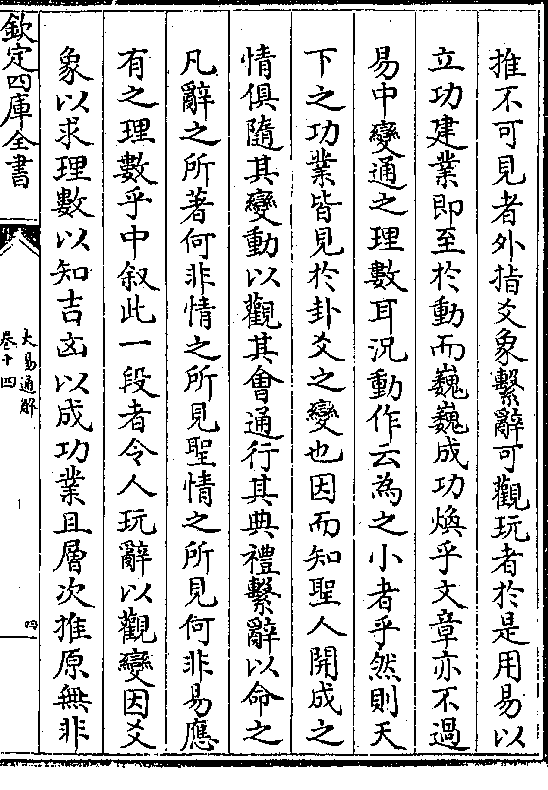 推不可見者外指爻象繫辭可觀玩者於是用易以
立功建業即至於動而巍巍成功煥乎文章亦不過
易中變通之理數耳況動作云為之小者乎然則天
下之功業皆見於卦爻之變也因而知聖人開成之
情俱隨其變動以觀其會通行其典禮繫辭以命之
凡辭之所著何非情之所見聖情之所見何非易應
有之理數乎中叙此一段者令人玩辭以觀變因爻
象以求理數以知吉凶以成功業且層次推原無非
欽定四庫全書
大易通解
卷十四
四